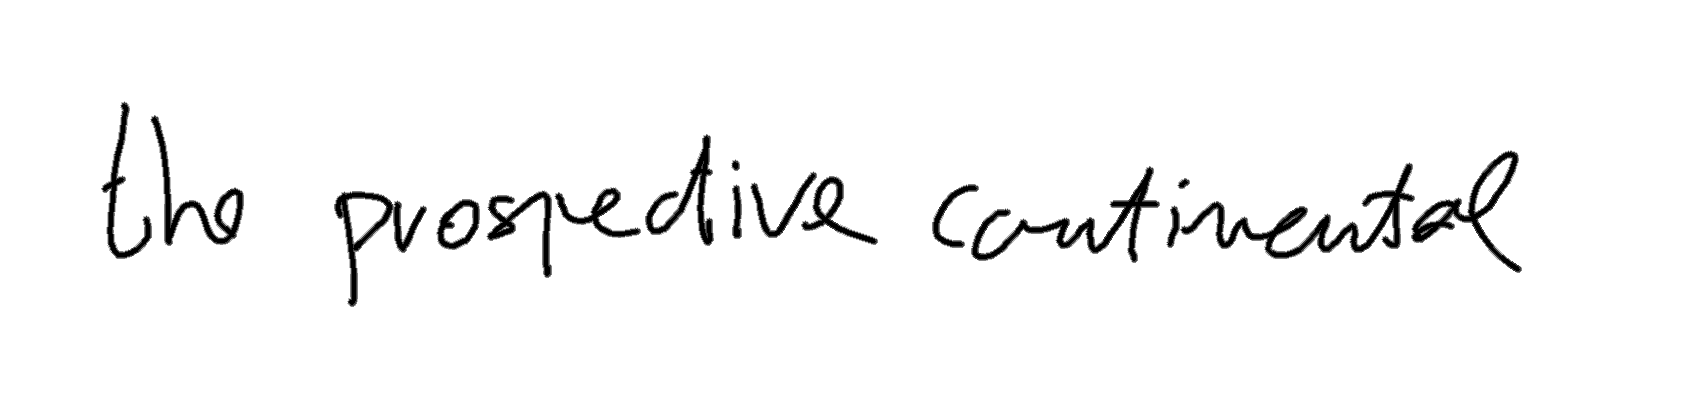 the prospective continental